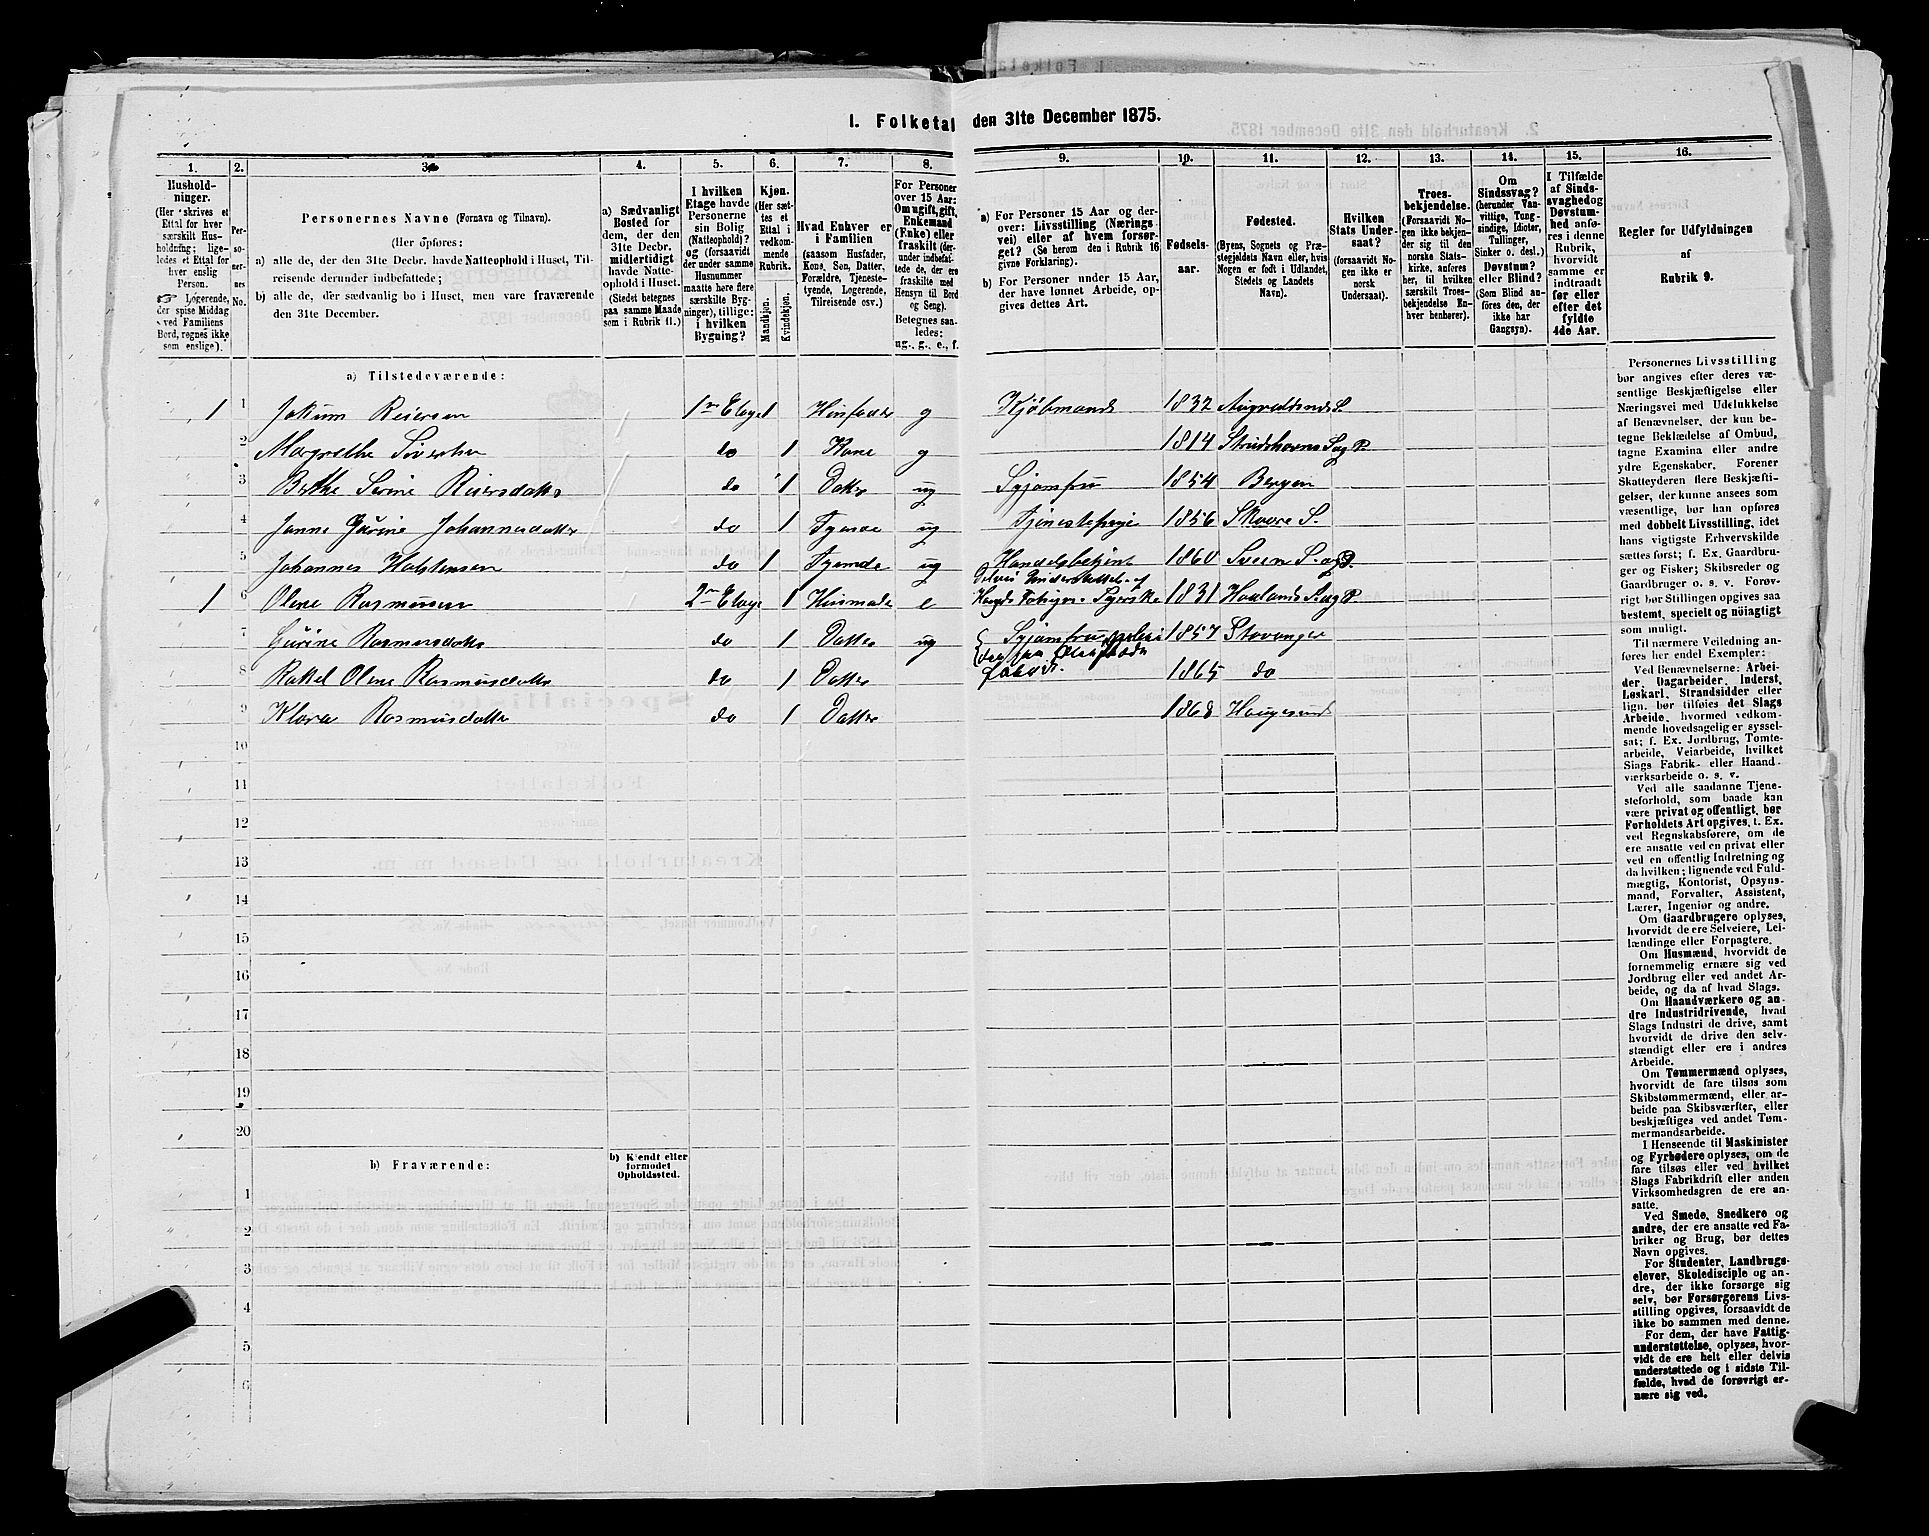 I. Folketal den 31te December 1875.
1. 2. 3. 4. 5. 6. 7. 8. 9. 10. 11. 12. 13. 14. 15. 16.
Hushold-
ninger.
(Her skrives et
Ettal for hver
særskilt Hus-
holdning; lige-
ledes et Ettal for
hver enslig
Person.
☞ Logerende,
der spise Middag
ved Familiens
Bord, regnes ikke
som enslige).
Per-
so-
ner-
nes
No.
Personernes Navne (Fornavn og Tilnavn).
(Her opføres:
a) alle de, der den 31te Decbr. havde Natteophold i Huset, Til-
reisende derunder indbefattede;
b) alle de, der sædvanlig bo i Huset, men vare fraværende
den 31te December.
a) Sædvanligt
Bosted for
dem, der den
31te Decbr.
midlertidigt
havde Natte-
ophold i Huset.
(Stedet betegnes
paa samme Maade
som i Rubrik 11.)
I hvilken
Etage havde
Personerne
sin Bolig
(Natteophold)?
og (forsaavidt
der under samme
Husnummer
maatte høre flere
særskilte Byg-
ninger), tillige:
i hvilken
Bygning?
Kjøn.
(Her sæt-
tes et
Ettal i
vedkom-
mende
Rubrik.
Mandkjøn.
Kvindekjøn.
Hvad Enhver er
i Familien
(saasom Husfader,
Kone, Søn, Datter,
Forældre, Tjeneste-
tyende, Logerende,
Tilreisende osv.)
For Personer
over 15 Aar:
Om ugift, gift,
Enkemand
(Enke) eller
fraskilt (der-
under indbefat-
tede de, der ere
fraskilte med
Hensyn til Bord
og Seng).
Betegnes saa-
ledes:
ug., g., e., f.
a) For Personer 15 Aar og der-
over: Livsstilling (Nærings
vei) eller af hvem forsør-
get? (Se herom den i Rubrik 16
givne Forklaring).
b) For Personer under 15 Aar,
der have lønnet Arbeide, op-
gives dettes Art.
Fødsels-
aar.
Fødested.
(Byens, Sognets og Præ-
stegjeldets Navn eller, hvis
Nogen er født i Udlandet,
Stedets og Landets
Navn).
Hvilken
Stats Under-
saat?
(forsaavidt No-
gen ikke er
norsk
Undersaat).
Troes-
bekjendelse.
(Forsaavidt No-
gen ikke bekjen-
der sig til den
norske Stats-
kirke, anføres
her, til hvilken
særskilt Troes-
bekjendelse En-
hver henhører).
Om
Sindssvag?
(herunder Van-
vittige, Tung-
sindige, Idioter,
Tullinger,
Sinker o. desl.)
Døvstum?
eller Blind?
(Som Blind an-
føres den, der
ikke har
Gangsyn).
I Tilfælde
af Sinds-
svaghed og
Døvstum-
hed anfø-
res i denne
Rubrik,
hvorvidt
samme er
indtraadt
før eller
efter det
fyldte
4de Aar.
Regler for Udfyldningen
af
Rubrik 9.
a) Tilstedeværende:
1 1 Jakum Reiersen 1ste Etage 1 Husfader g Kjøbmand 1832 S.
2 Margrethe do 1 Kone g 1814 Sog P.
3 Berthe Serine Reiersdatter do 1 Datter ug Syjomfru 1854 Bergen
4 Janne Gurine Johannesdatter do 1 Tyende ug Tjenestepige 1856 Skaare S.
5 Johannes Halstensen do 1 Tyende ug Handelsbetjent 1860 Sveen S. og P.
1 6 Olene Rasmussen 2den Etage 1 Husmoder e 1831 S. og P.
7 Gurine Rasmusdatter do 1 Datter ug Syjomfru 1857 Stavanger
8 Rakel Olene Rasmusdatter do 1 Datter 1865 do
9 Klara Rasmusdatter do 1 Datter 1868 Haugesund
10
11
12
13
14
15
16
17
18
19
20
b) Fraværende:
b) Kjendt eller
formodet
Opholdssted.
1
2
3
4
5
6
Personernes Livsstilling
bør angives efter deres væ-
sentlige Beskjæftigelse eller
Næringsvei med Udelukkelse
af Benævnelser, der kun be-
tegne Beklædelse af Ombud,
tagne Examina eller andre
ydre Egenskaber. Forener
Skatteyderen flere Beskjæfti-
gelser, der kunne ansees som
væsentlige, bør han opføres
med dobbelt Livsstilling, idet
hans vigtigste Erhvervskilde
sættes først; f. Ex. Gaardbru-
ger og Fisker; Skibsreder og
Gaardbruger o. s. v. Forøv-
rigt bør Stillingen opgives saa
bestemt, specielt og nøiagtigt
som muligt.
Til nærmere Veiledning an-
føres her endel Exempler:
Ved Benævnelserne: Arbei-
der, Dagarbeider, Inderst,
Løskarl, Strandsidder eller
lign. bør tilføies det Slags
Arbeide, hvormed vedkom-
mende hovedsagelig er syssel-
sat; f. Ex. Jordbrug, Tomte-
arbeide, Veiarbeide, hvilket
Slags Fabrik- eller Haand-
værksarbeide o. s. v.
Ved alle saadanne Tjene-
steforhold, som baade kan
være privat og offentligt, bør
Forholdets Art opgives, t. Ex.
ved Regnskabsførere, om de
ere ansatte ved en privat eller
ved en offentlig Indretning og
da hvilken; lignende ved Fuld-
mægtig, Kontorist, Opsyns-
mand, Forvalter, Assistent,
Lærer, Ingeniør og andre.
Om Gaardbrugere oplyses,
hvorvidt de ere Selveiere, Lei-
lændinge eller Forpagtere.
Om Husmænd, hvorvidt de
fornemmelig ernære sig ved
Jordbrug eller ved andet Ar-
beide, og da af hvad Slags.
Om Haandværkere og an-
dre Industridrivende, hvad
Slags Industri de drive, samt
hvorvidt de drive den selv-
stændigt eller ere i andres
Arbeide.
Om Tømmermænd oplyses,
hvorvidt de fare tilsøs som
Skibstømmermænd, eller ar-
beide paa Skibsværfter, eller
beskjæftiges ved andet Tøm-
mermandsarbeide.
I Henseende til Maskinister
og Fyrbødere oplyses, om de
fare tilsøs eller ved hvilket
Slags Fabrikdrift eller anden
Virksomhedsgren de ere an-
satte.
Ved Smede, Snedkere og
andre, der ere ansatte ved Fa-
briker og Brug, bør dettes
Navn opgives.
For Studenter, Landbrugs-
elever, Skoledisciple og an-
dre, der ikke forsørge sig
selv, bør Forsørgerens Livs-
stilling opgives, forsaavidt de
ikke bo sammen med denne.
For dem, der have Fattig-
understøttelse, oplyses, hvor-
vidt de ere helt eller delvis
understøttede og i sidste Til-
fælde, hvad de forøvrigt er-
nære sig ved.